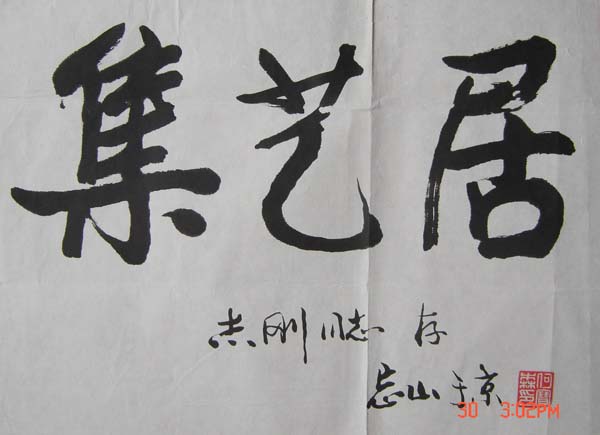 集艺居
志刚同志 存
山于京
30 3:02PM